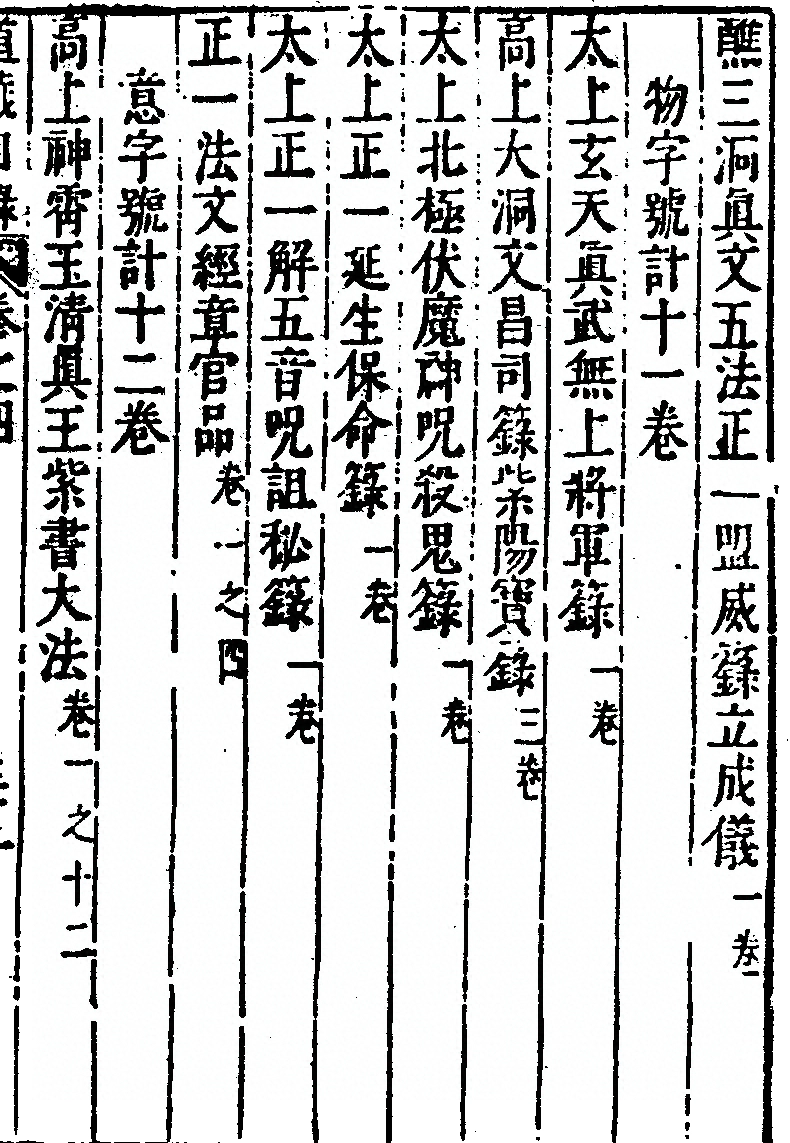 醮三洞眞文五法正一盟威籙立成儀一卷
物字號計十一卷
太上玄天眞武無上將軍籙一卷
高上大洞文昌司籙紫陽寶籙三卷
太上北極伏魔神呪殺鬼籙一卷
太上正一延生保命籙一卷
太上正一解五音呪詛秘籙一卷
正一法文經章官品卷一之四
意字號計十二卷
高上神霄玉淸眞王紫書大法卷一之十二